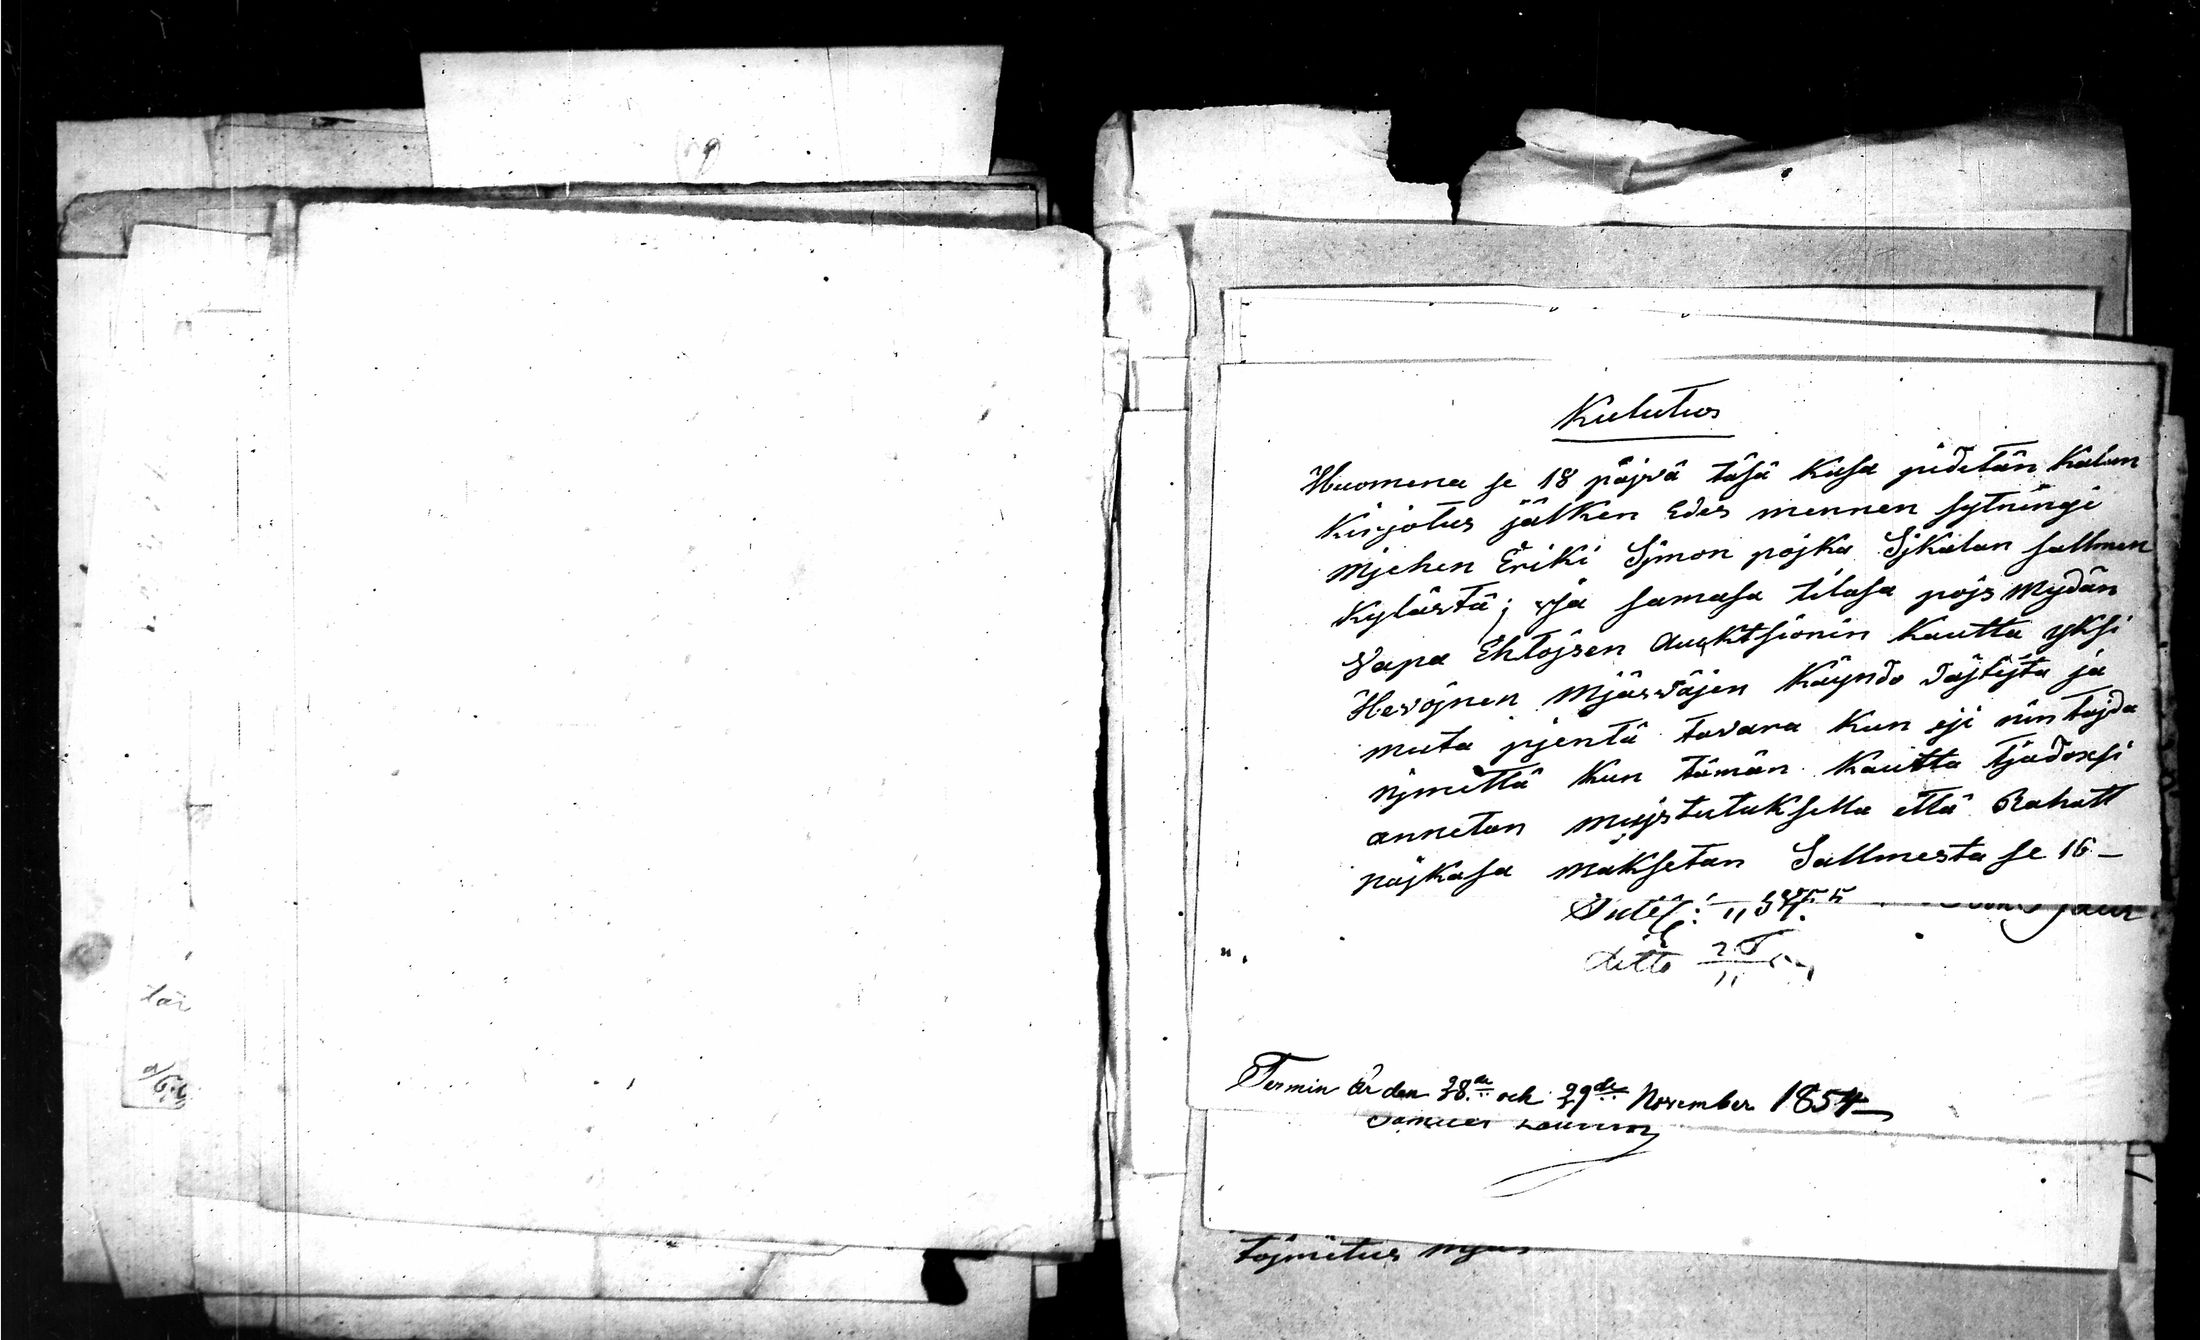 Kulutus
Huomena se 18 päjvä täsä Kusa pidetän Kalun
Kirjotus jälken Edes mennen sytningi
Mjehen Eriki Sjmon pojka Sjkälan sallmen
Kylästä; ja samasa tilasa pojs Mydän
Vapa Ehtojsen Auktsionin Kautta yksi
Hevojnen Mjäs väjen Käyndo vajtejta ja
muta pjentä tavara Kun eji nin tajda
njmettä Kun tämän Kautta Tjädoxsi
annetan mujstutuksella että Rahatt
pajkasa maksetan Sallmesta se 16 –
ditto
Termin är den 28de och 29de November 1854
tojmitus
täi